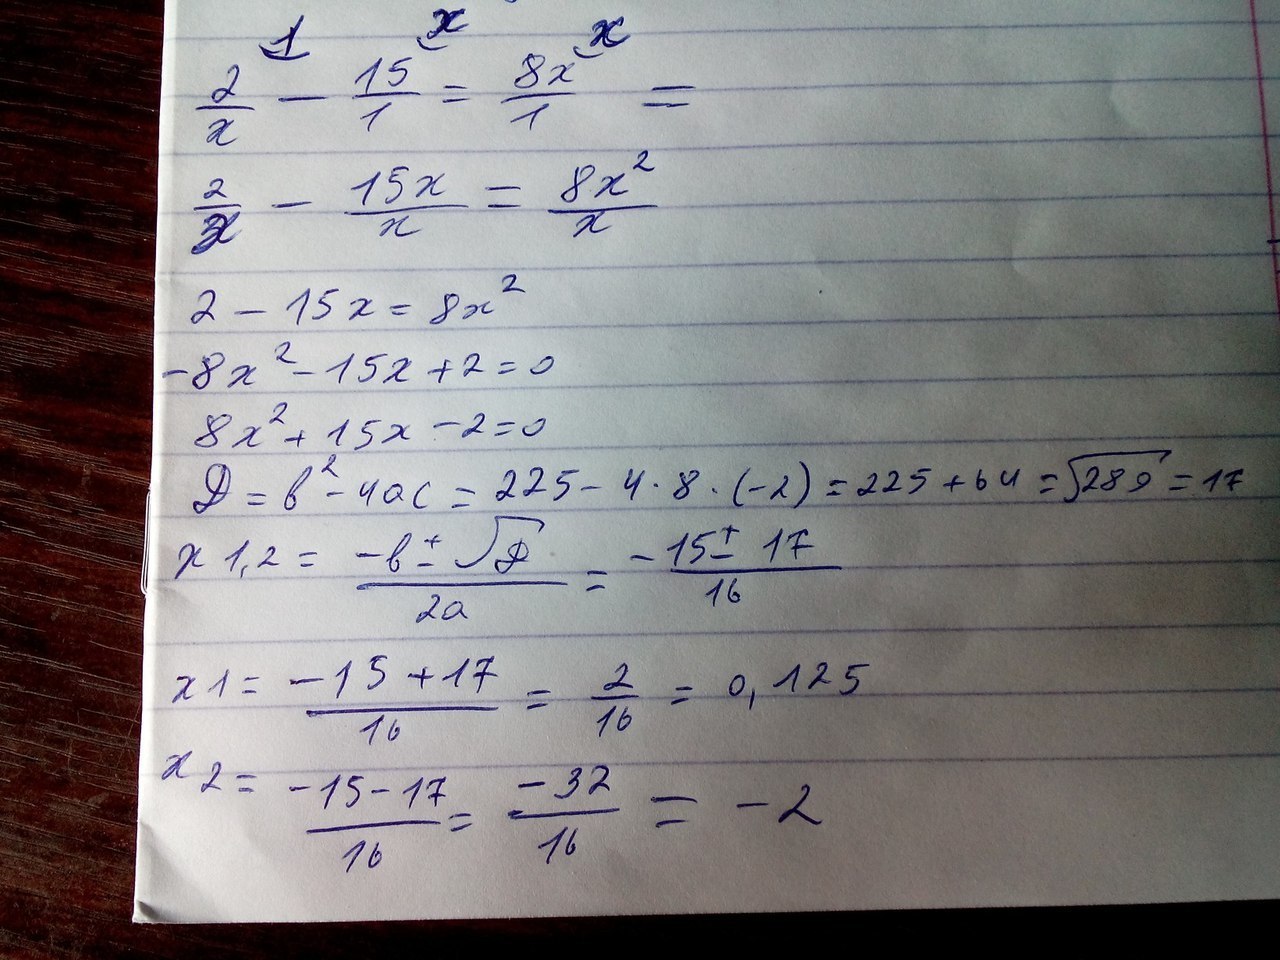 2/x ⁽¹ - 15/1 ⁽ˣ = 8x/1 ⁽ˣ =
2/x - 15x/x = 8x²/x
2 - 15x = 8x²
-8x² - 15x + 2 = 0
8x² + 15x - 2 = 0
D = b² - 4ac = 225 - 4 · 8 · (-2) = 225 + 64 = √289 = 17
x 1,2 = -b ± √D / 2a = -15 ± 17 / 16
x1 = -15 + 17 / 16 = 2/16 = 0,125
x2 = -15 - 17 / 16 = -32/16 = -2